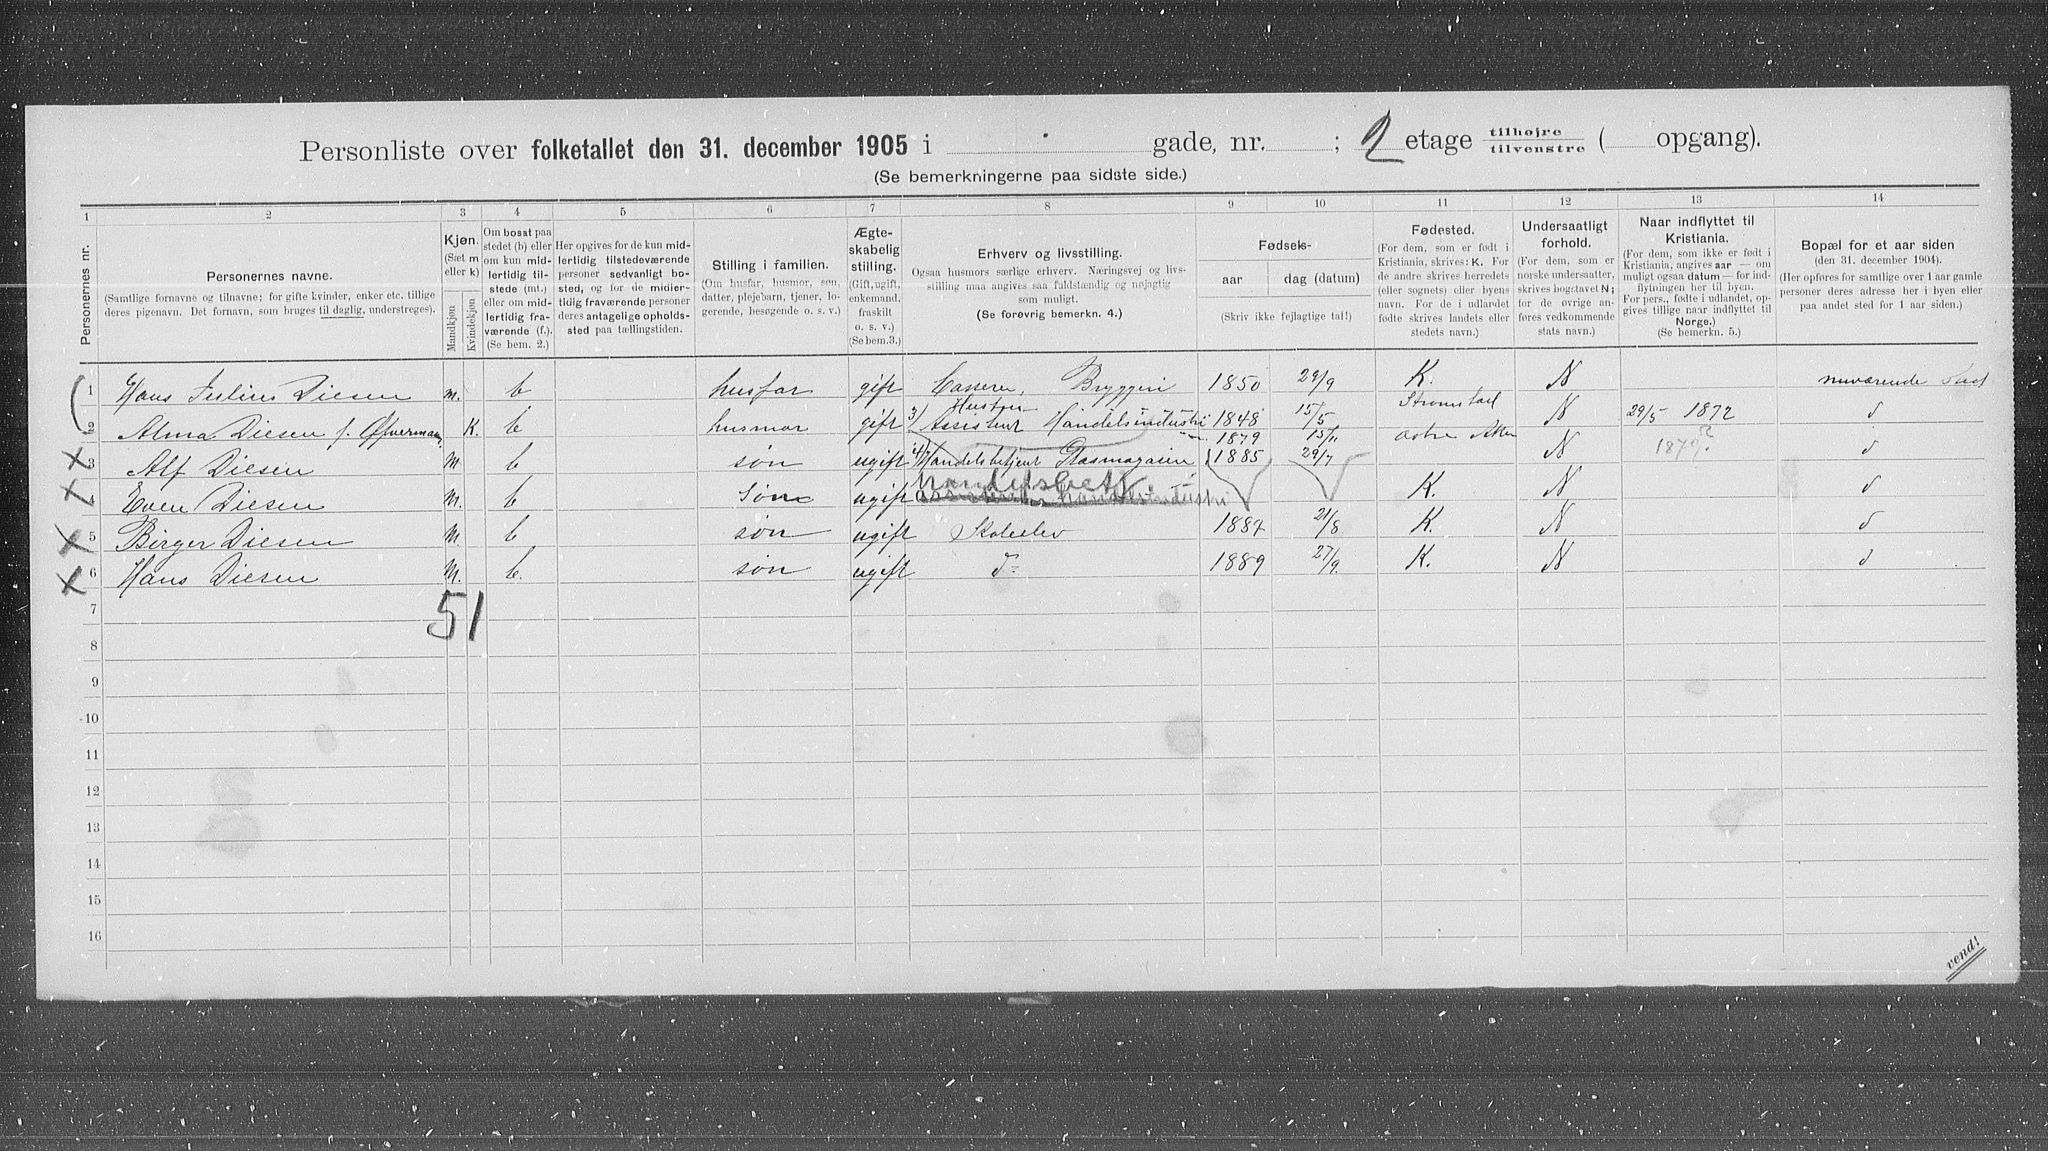 Personliste over folketallet den 31. december 1905 i gade, nr. ; 2 etage tilhøjre tilvenstre ( opgang).
(Se bemerkningerne paa sidste side.)
1 2 3 4 5 6 7 8 9 10 11 12 13 14
Personernes nr.
Personernes navne.
(Samtlige fornavne og tilnavne; for gifte kvinder, enker etc. tillige
deres pigenavn. Det fornavn, som bruges til daglig, understreges).
Kjøn.
(Sæt m
eller k)
Mandkjøn
Kvindekjøn
Om bosat paa
stedet (b) eller
om kun mid-
lertidig til-
stede (mt.)
eller om mid-
lertidig fra-
værende (f.).
(Se bem. 2.)
Her opgives for de kun mid-
lertidig tilstedeværende
personer sedvanligt bo-
sted, og for de midler-
tidig fraværende personer
deres antagelige opholds-
sted paa tællingstiden.
Stilling i familien.
(Om husfar, husmor, søn,
datter, plejebarn, tjener, lo-
gerende, besøgende o. s. v.)
Ægte-
skabelig
stilling.
(Gift, ugift,
enkemand,
fraskilt
o. s. v.)
(Se bem. 3.)
Erhverv og livsstilling.
Ogsaa husmors særlige erhverv. Næringsvej og livs-
stilling maa angives saa fuldstændig og nøjagtig
som muligt.
(Se forøvrig bemerkn. 4.)
Fødsels-
aar dag (datum)
(Skriv ikke fejlagtige tal!)
Fødested.
(For dem, som er født i
Kristiania, skrives: K. For
de andre skrives herredets
(eller sognets) eller byens
navn. For de i udlandet
fødte skrives landets eller
stedets navn.)
Undersaatligt
forhold.
(For dem, som er
norske undersaatter,
skrives bogctavet N;
for de øvrige an-
føres vedkommende
stats navn.)
Naar indflyttet til
Kristiania.
(For dem, som ikke er født i
Kristiania, angives aar — om
muligt ogsaa datum — for ind-
flytningen her til byen.
For pers., fødte i udlandet, op-
gives tillige naar indflyttet til
Norge.)
(Se bemerkn. 5.)
Bopæl for et aar siden
(den 31. december 1904).
(Her opføres for samtlige over 1 aar gamle
personer deres adresse her i byen eller
paa andet sted for 1 aar siden.)
1 Hans Julius Diesen m. b husfar gift Casserer, Bryggeri 1850 29/9 K. N nuværende Sted
Hustru
2 Alma Diesen f. Øfverman K. b husmor gift 1848 15/5 Strømstad N 29/5 1872 d
3) Assistent Handelsindustri 1879 13/11
3 Alf Diesen M b søn ugift 4) Handelsbetjent Glasmagasin 1885 29/7 Aker N d
handelsbetj.
4 Even Diesen M. b søn ugift K. N d
5 Birger Diesen M b søn ugift Skoleelev 1887 21/8 K. N d
6 Hans Diesen M. b. søn ugift d 1889 27/9. K. N d
51
7
8
9
10
11
12
13
14
15
16
vend!